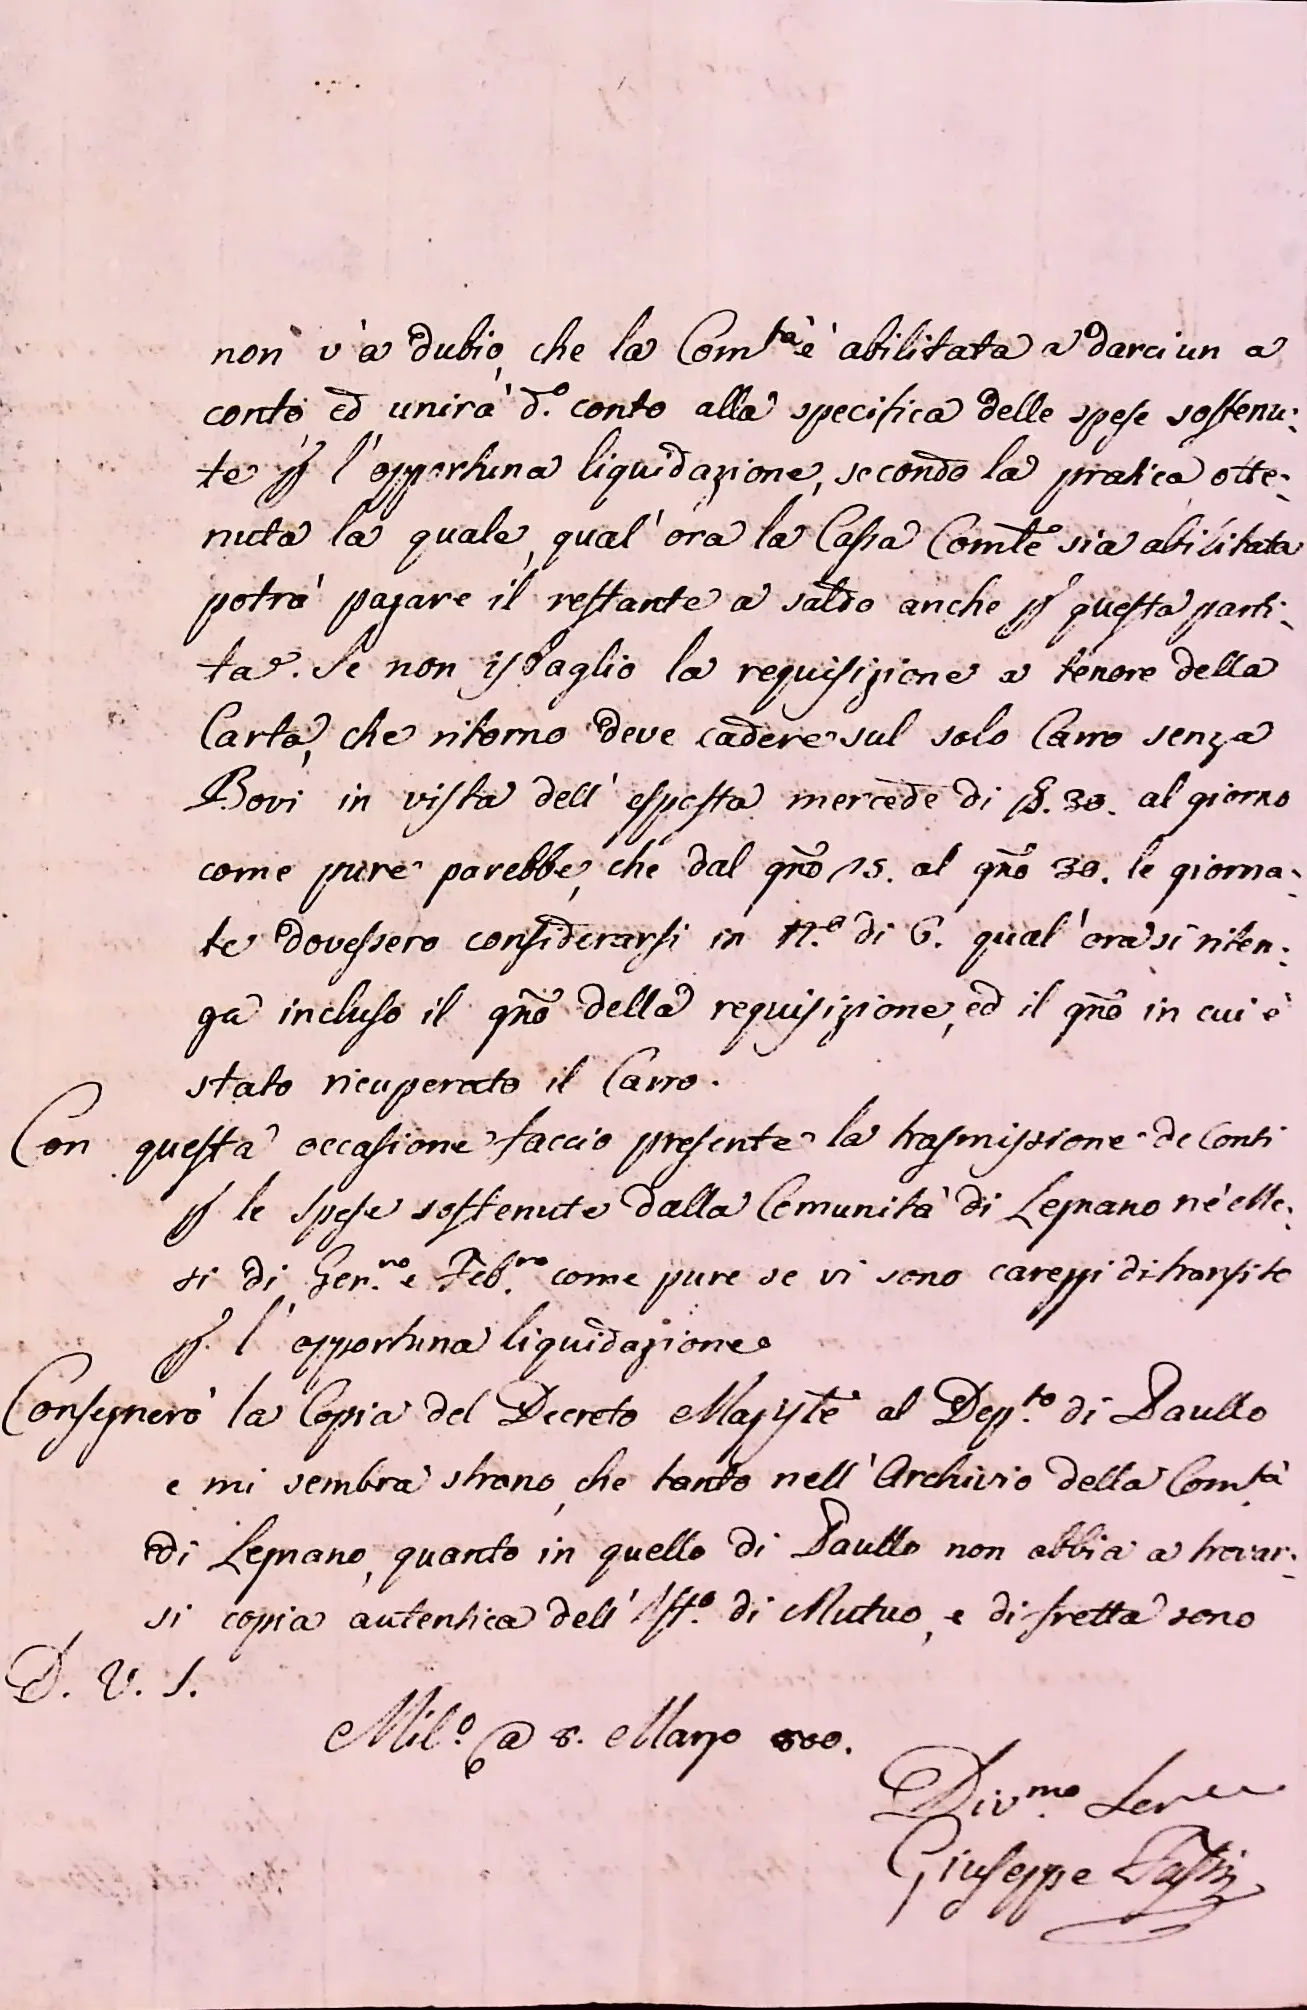 non v'à dubio, che la Com.tà è abilitata a darci un a
conto ed unirà d.o conto alla specifica delle spese sostenu:
te p l'opportuna liquidazione, secondo la pratica otte:
nuta la quale, qual'ora la Cassa Comtle sia abilitata
potrà pagare il restante a saldo anche p questa parti:
ta. Se non isbaglio la requisizione a tenore della
Carta, che ritorno deve cadere sul solo Carro senza
Bovi in vista dell'esposta mercede di 30. al giorno
come pure parebbe, che dal gño 15. al gño 30. le giorna:
te dovessero considerarsi in N.o di 6. qual'ora si riten:
ga incluso il gño della requisizione, ed il gño in cui è
stato ricuperato il Carro.
Con questa occasione faccio presente la trasmissione de Conti
p le spese sostenute dalla Comunità di Legnano né Me:
si di Gen.ro e Feb.ro come pure se vi sono careggi di transito
p l'opportuna liquidazione
Consegnerò la Copia del Decreto al Dep.to di Paullo
e mi sembra strano, che tanto nell'Archivio della Com.tà
di Legnano, quanto in quello di Paullo non abbia a trovar:
si copia autentica dell'Ist.o di Mutuo, e di fretta sono
D. V. S.
Mil.o @ 8. Marzo 800.
Div.mo Ser
Giuseppe